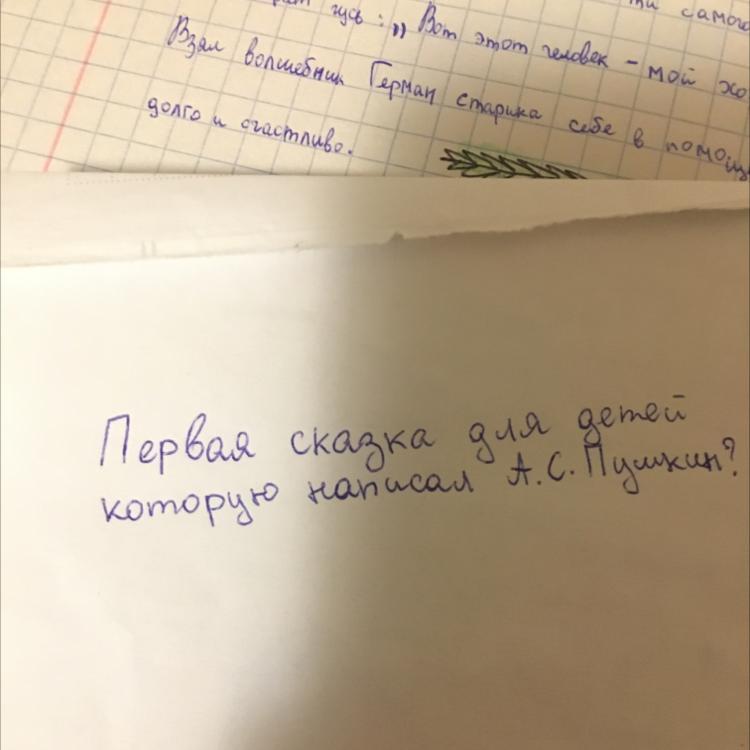 гусь: „Вот этот человек - мой хо
самого
Взял волшебник Герман старика себе в помощ
долго и счастливо.
Первая сказка для детей
которую написал А.С.Пушкин?